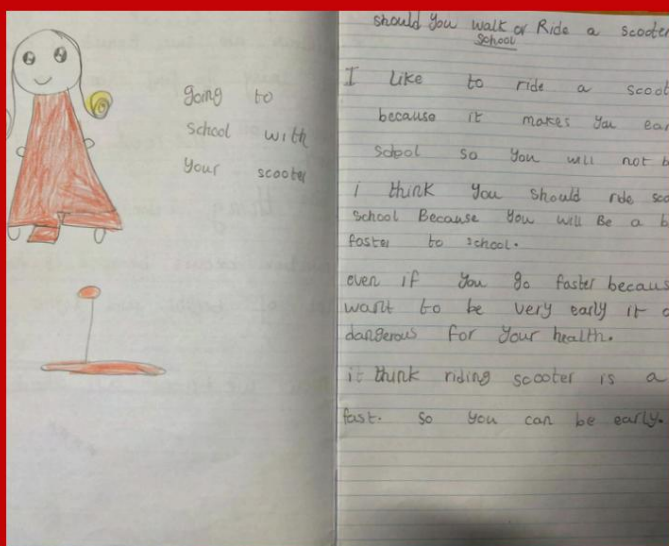 going to
school with
your scooter
should you walk or Ride a scooter
school
I Like to ride a scoot
because it makes you ear
school so you will not b
i think you should ride sco
school Because you will Be a b
faster to school.
even if you go faster becaus
want to be very early it c
dangerous for your health.
it think riding scooter is a
fast. so you can be early.